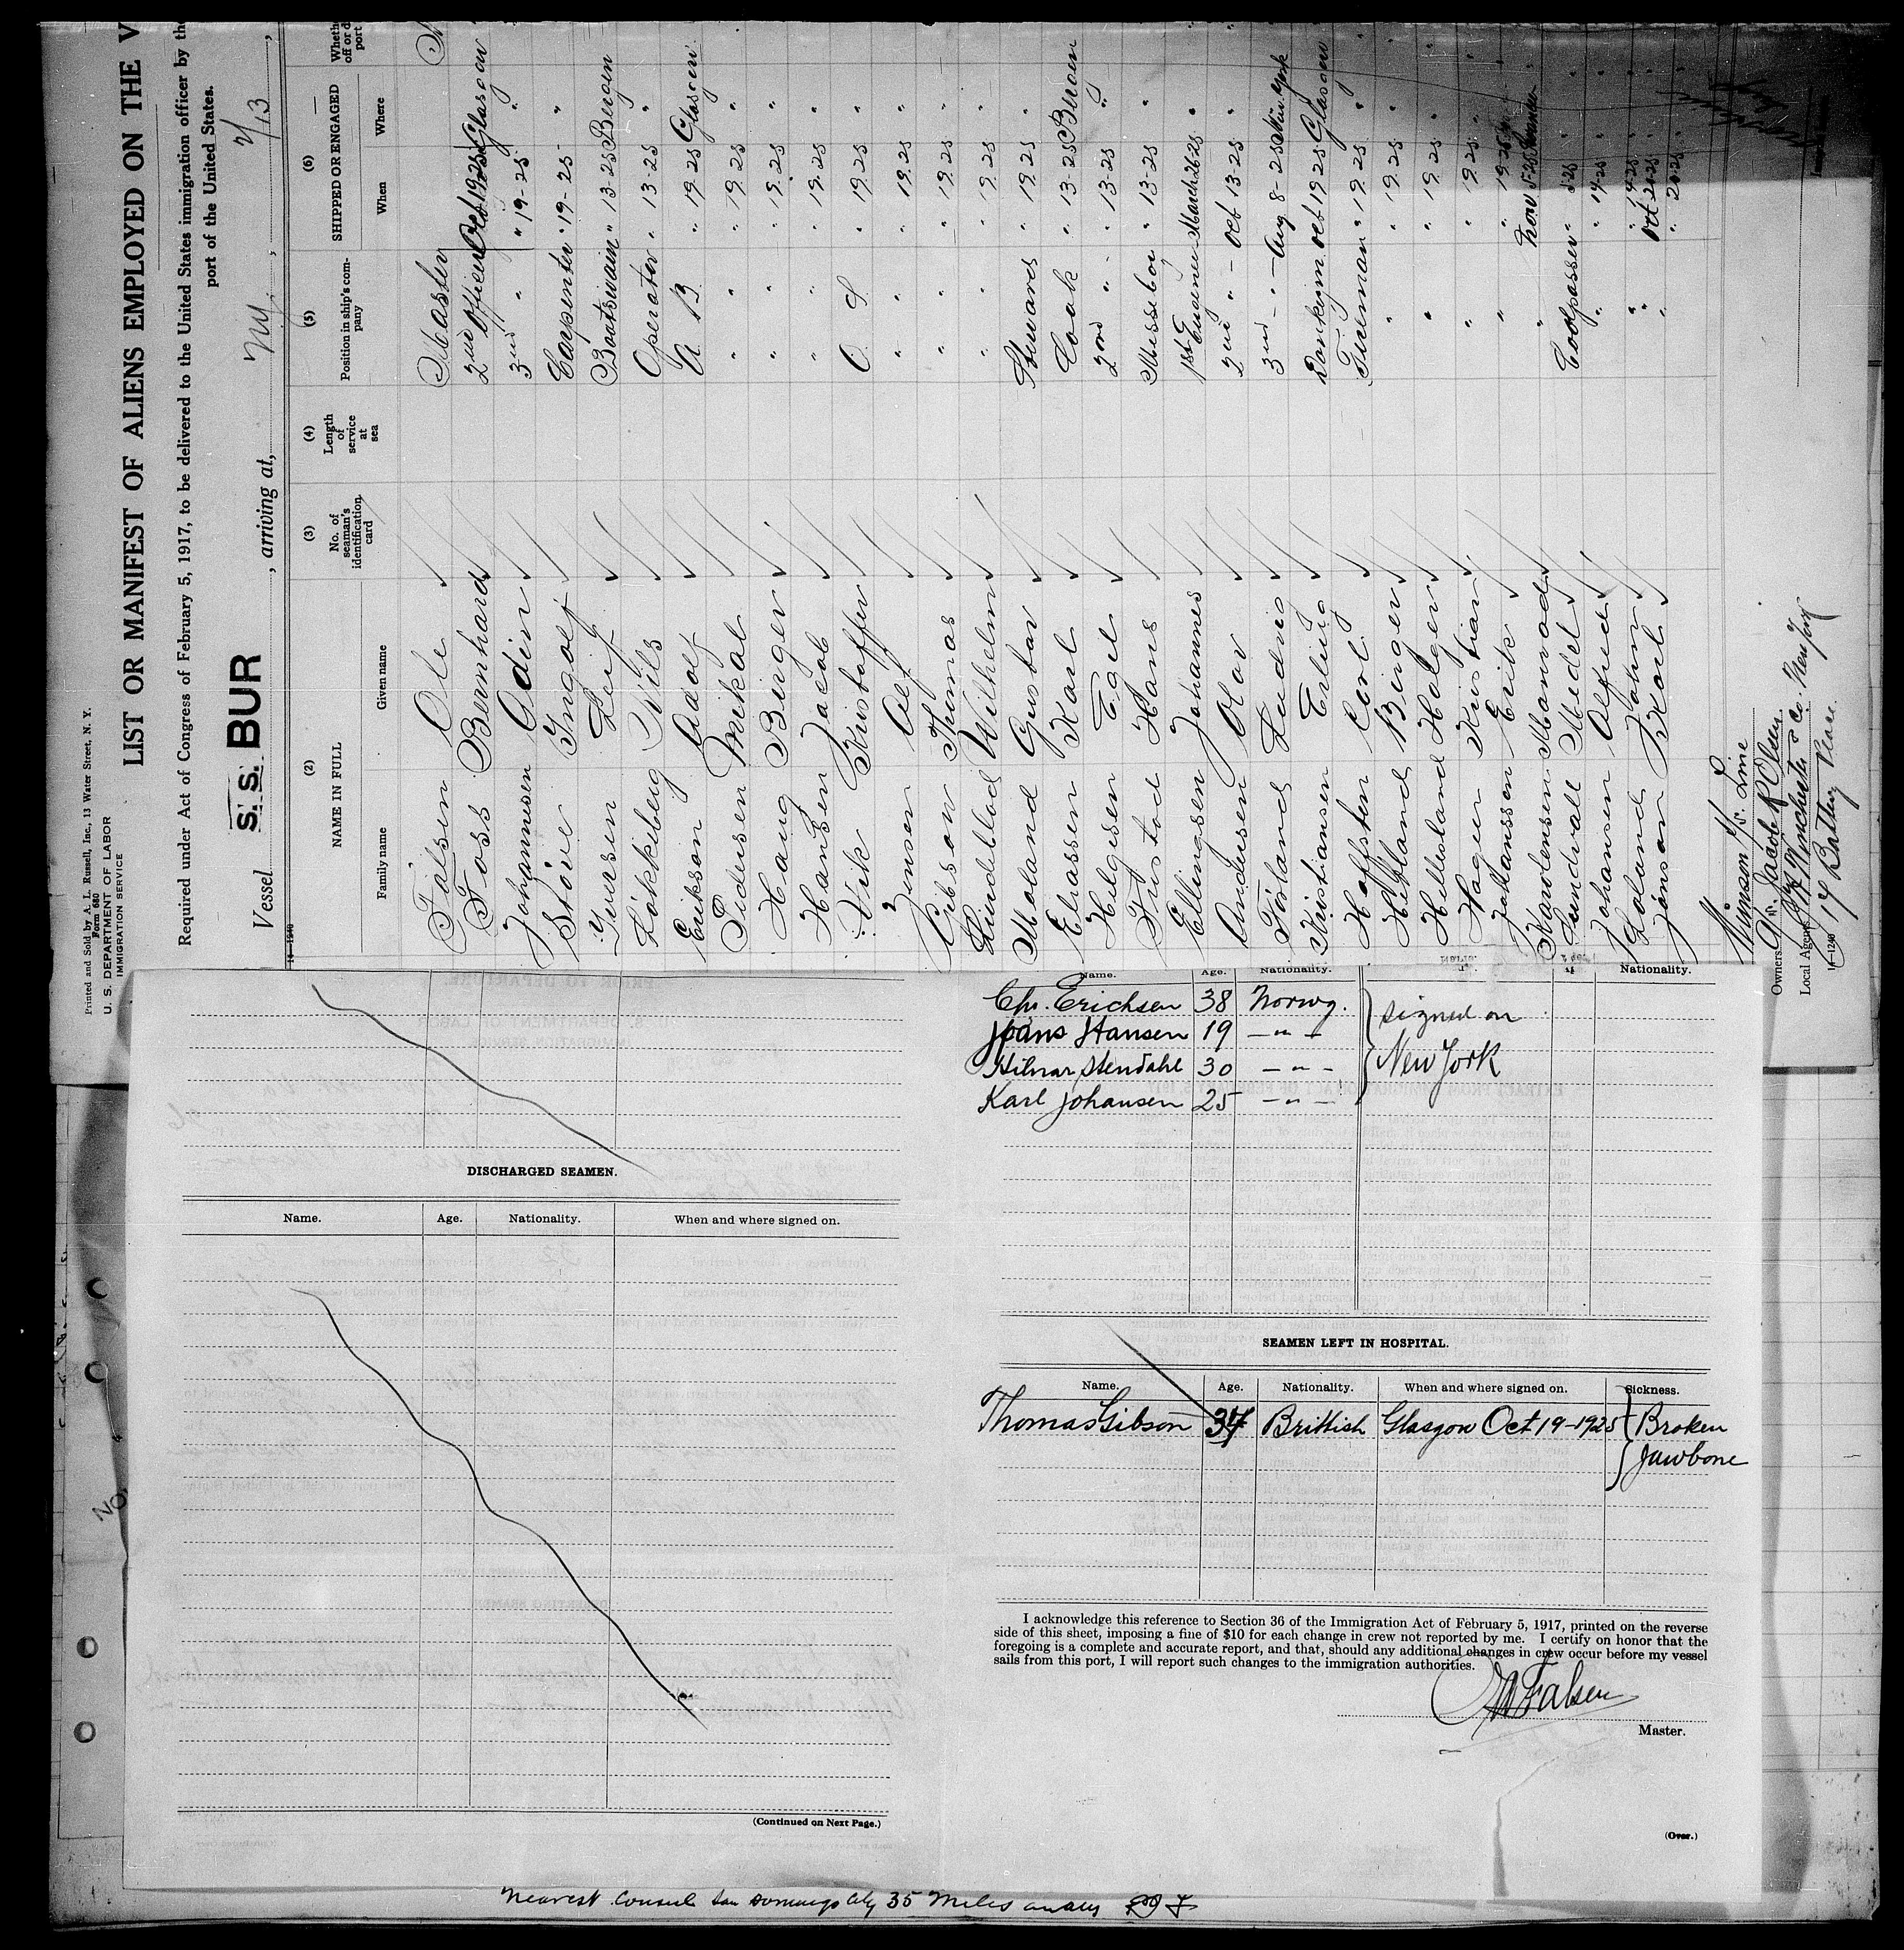 Printed and Sold by A. L. Russell, Inc., 13 Water Street, N. Y.
Form 680
U. S. DEPARTMENT OF LABOR
IMMIGRATION SERVICE
LIST OR MANIFEST OF ALIENS EMPLOYED ON THE V
Required under Act of Congress of February 5, 1917, to be delivered to the United States immigration officer by the
port of the United States.
Vessel S. S. BUR , arriving at, NY. , 2/13 ,
14-1240
(2) (3) (4) (5) (6)
NAME IN FULL No. of seaman's identification card Length of service at sea Position in ship's company SHIPPED OR ENGAGED
Family name Given name When Where
Falsen Ole Master
Foss Bernhard 2nd Officer Oct 19-25 Glasgow
Johannesen Odin 3rd " " 19-25 "
Støve Ingolf Carpenter " 19-25 "
Iversen Leif Boatswain " 13-25 Bergen
Løkkeberg Nils Operator " 13-25 "
Erikson Adolf A B. " 19-25 Glasgow
Sidussen Mikal " " 19.25 "
Haug Birger " " 19.25 "
Hansen Jacob " " 19-25 "
Vik Kristoffer O. S. " 19.25 "
Jensen Alf " " 19.25 "
Gibson Thomas " " 19.25 "
Lindeblad Wilhelm " " 19.25 "
Moland Gustav Steward " 19.25 "
Eliassen Karl Cook " 13-25 Bergen
Helgesen Egil 2nd " " 13-25 "
Frustad Hans Messeboy " 13-25 "
Ellingsen Johannes 1st Engineer March 26-25 "
Andersen Olav 2nd " - Oct 13-25 "
Forland Ludvig 3rd - " - Aug 8-25 New York
Kristiansen Erling Donkeym. Oct 19 25 Glasgow
Hoffsten Carl Fireman " 19.25 "
Hetland Birger " " 19.25 "
Hellesland Holger " " 19.25 "
Hagen Kristian " " 19.25 "
Johanssen Erik " " 19.25 "
Karolensen Mamnod " Nov 5-25
Sundvall Medel Coalpasser " 5-25 "
Johansen Alfred " " 14-25 "
Loland Johan " Oct 20-25 "
Jönson Karl " " 20.25 "
Winson S/S. Line
Owners Jacob R Olsen
Local Agents Winchester & Co. New York
14-1240 17 Battery Place.
DISCHARGED SEAMEN.
Name. Age. Nationality. When and where signed on.
(Continued on Next Page.)
Name. Age. Nationality. Nationality.
Chr. Erichsen 38 Norwg. signed on
Hans Hansen 19 - " -
Hilmar Stendahl 30 - " - New York
Karl Johansen 25 - " -
SEAMEN LEFT IN HOSPITAL.
Name. Age. Nationality. When and where signed on. Sickness.
Thomas Gibson 37 Brittish Glasgow Oct 19-1925 Broken
Jawbone
I acknowledge this reference to Section 36 of the Immigration Act of February 5, 1917, printed on the reverse
side of this sheet, imposing a fine of $10 for each change in crew not reported by me. I certify on honor that the
foregoing is a complete and accurate report, and that, should any additional changes in crew occur before my vessel
sails from this port, I will report such changes to the immigration authorities.
Falsen
Master.
(Over.)
Nearest Consul San Domingo City 35 Miles away